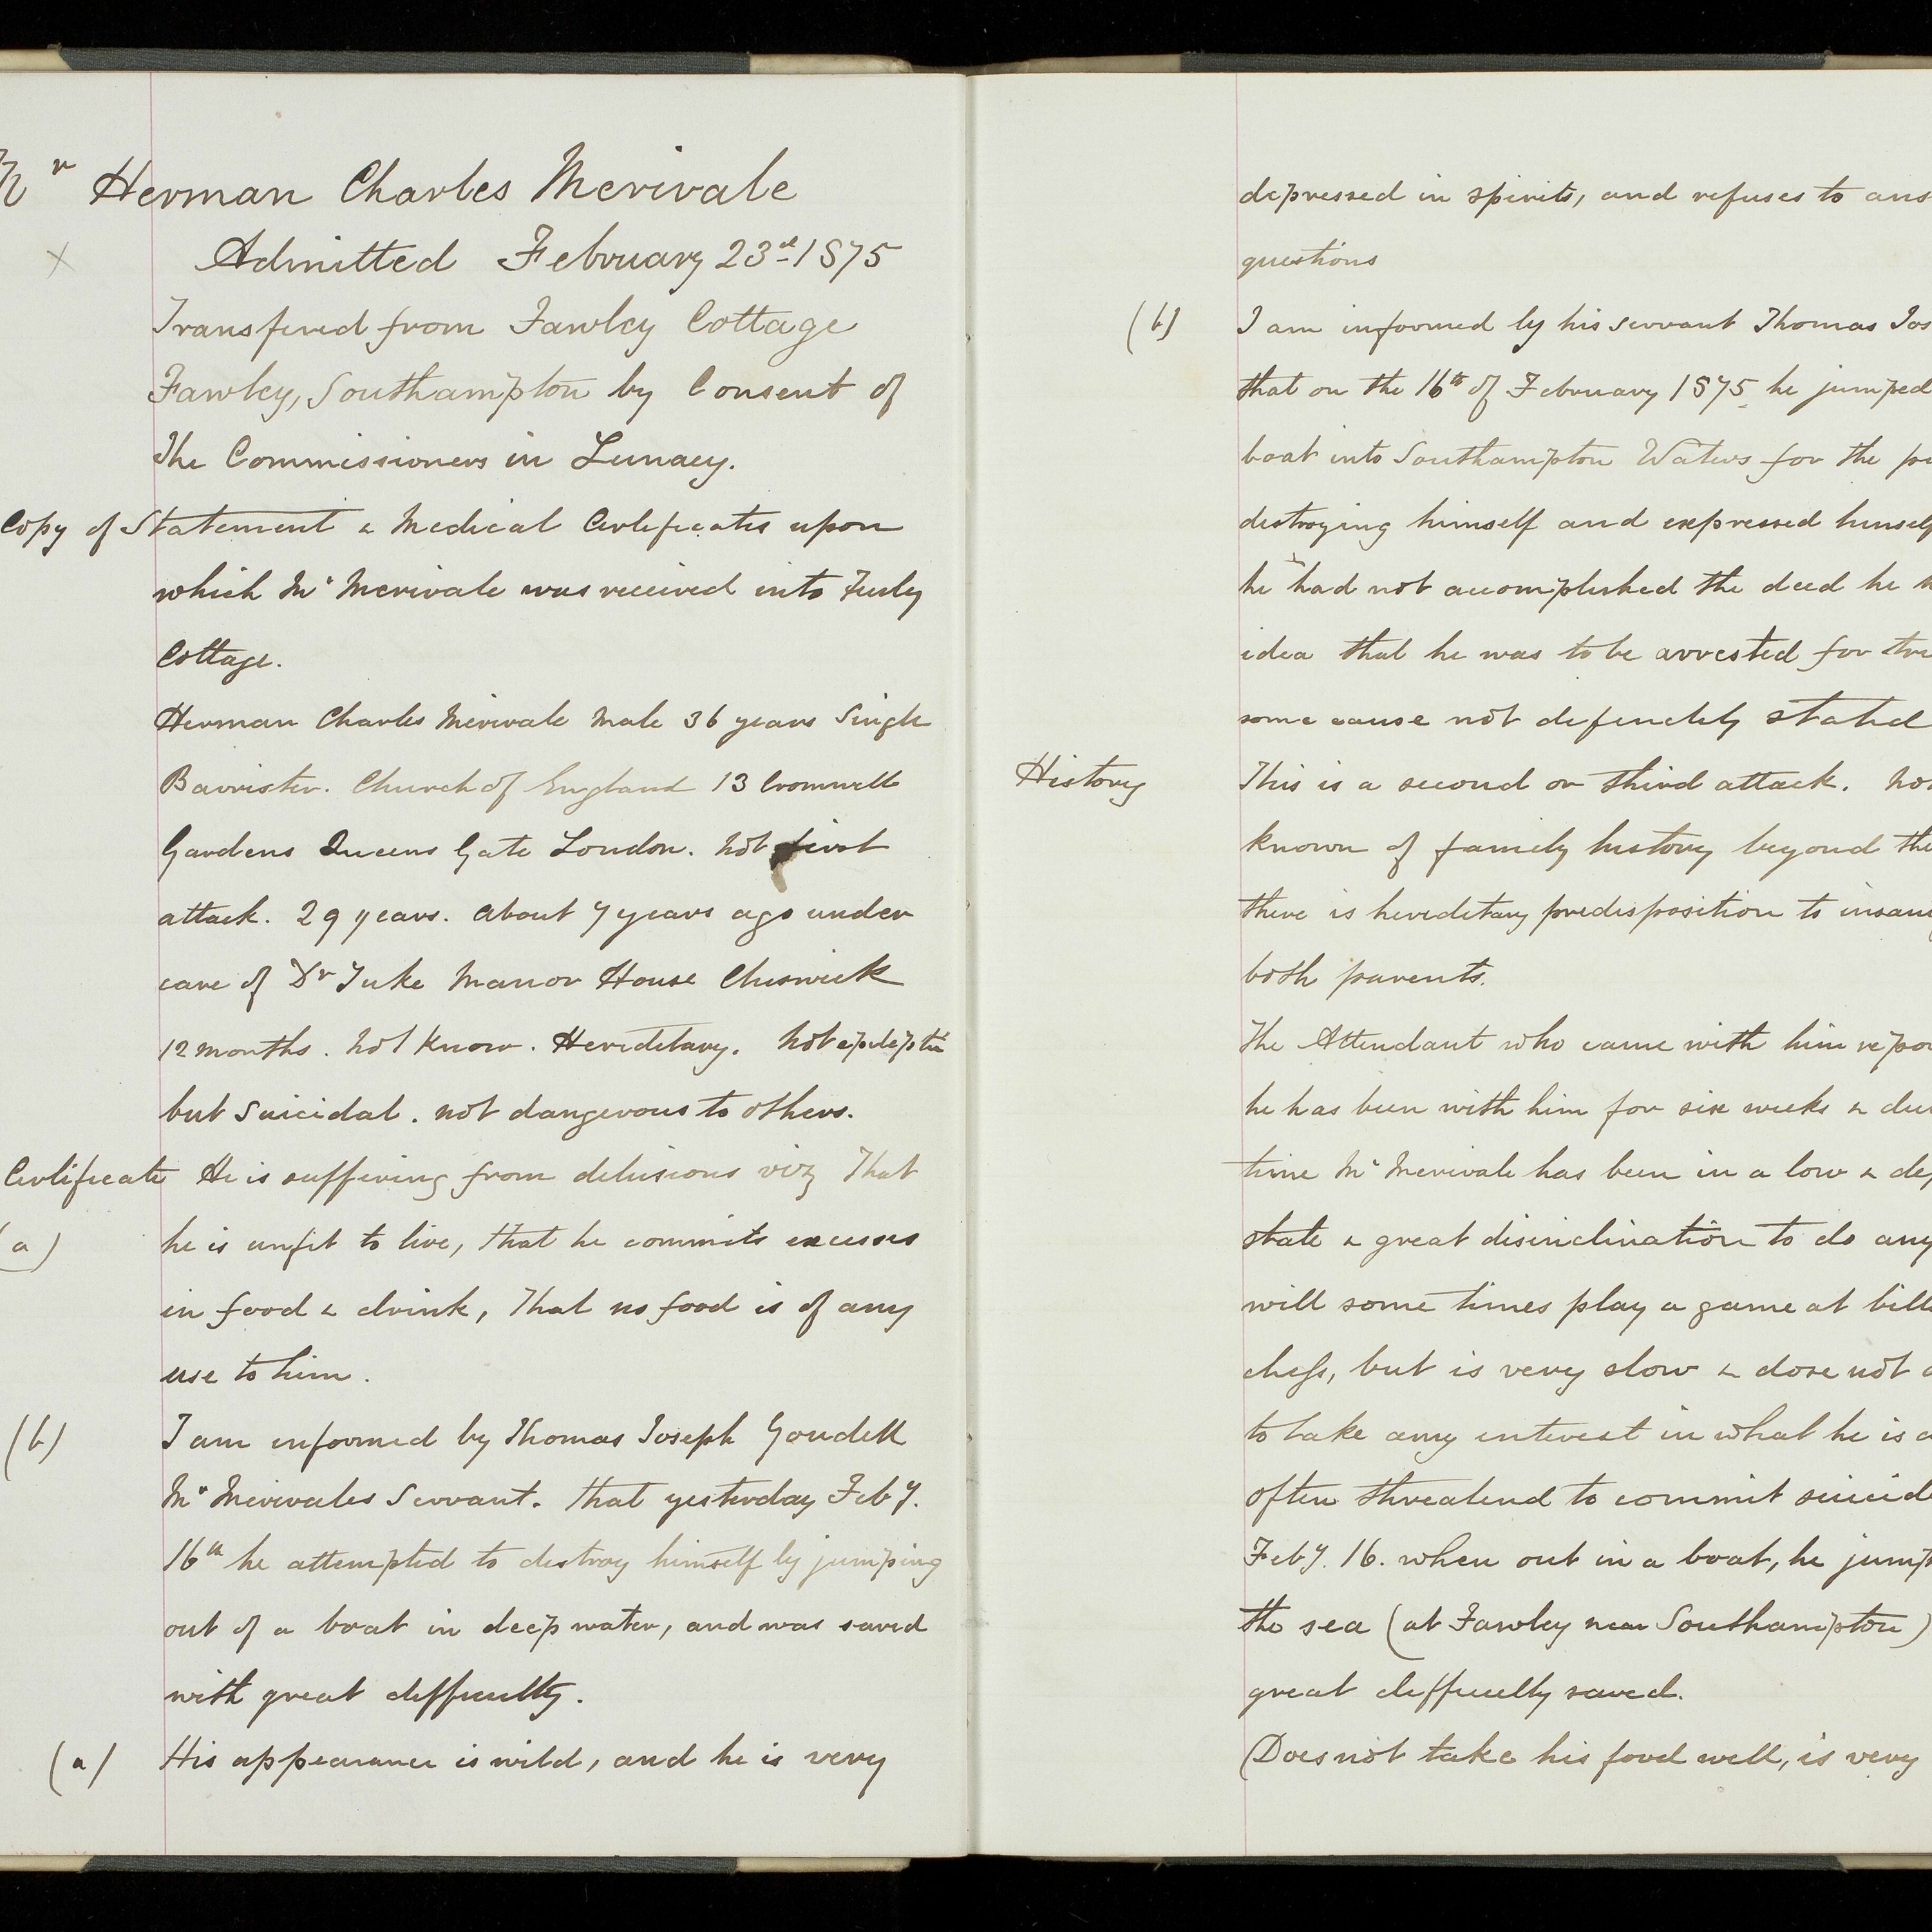 Mr Herman Charles Merivale
Admitted February 23d 1875
Transfered from Fawley Cottage
Fawley, Southampton by Consent of
The Commissioners in Lunacy.
Copy of Statement & Medical Certificates upon
which Mr Merivale was received into
Cottage.
Herman Charles Merivale Male 36 years Single
Barrister. Church of England 13 Cromwell
Gardens Queens Gate London. Not first
attack. 29 years. About 7 years ago under
care of Dr Tuke Manor House Chiswick
12 months. Not know. Hereditary. Not epileptic
but Suicidal. not dangerous to others.
Certificate He is suffering from delusions viz That
(a) he is unfit to live, that he commits excesses
in food & drink, That no food is of any
use to him.
(b) I am informed by Thomas Joseph
Mr Merivales Servant. that yesterday Feby.
16th he attempted to destroy himself by jumping
out of a boat in deep water, and was saved
with great difficulty.
(a) His appearance is wild, and he is very
depressed in spirits, and refuses to ans
questions
(b) I am informed by his servant Thomas Jos
that on the 16th of February 1875 he jumped
boat into Southampton Waters for the pu
destroying himself and expressed himself
he had not accomplished the deed he
idea that he was to be arrested for
some cause not definitely stated
History This is a second or third attack. No
known of family history beyond the
there is hereditary predisposition to insan
both parents.
The Attendant who came with him repo
he has been with him for six weeks & du
time Mr Merivale has been in a low & dep
state & great disinclination to do any
will some times play a game at bill
chess, but is very slow & dose not a
to take any interest in what he is
often threatend to commit suicid
Feby. 16. when out in a boat, he jump
the sea (at Fawley near Southampton)
great difficulty saved.
Does not take his food well, is very